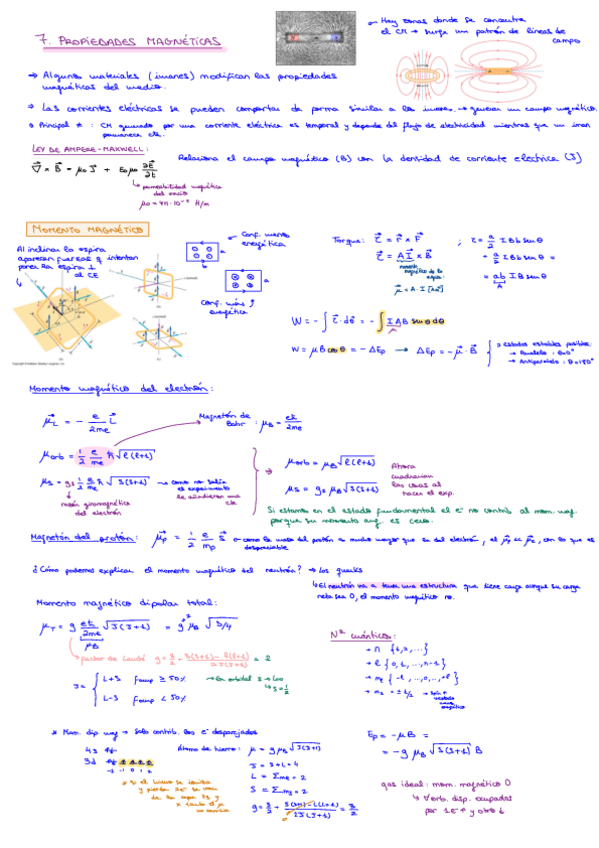 7. PROPIEDADES MAGNÉTICAS
Hay zonas donde se concentra
el CM → surge un patrón de líneas de
campo
→ Algunos materiales (imanes) modifican las propiedades
magnéticas del medio.
→ Las corrientes eléctricas se pueden comportar de forma similar a los imanes → generan un campo magnético
→ Principal ≠ : CM generado por una corriente eléctrica es temporal y depende del flujo de electricidad mientras que un iman
permanece cte.
LEY DE AMPERE-MAXWELL:
Relaciona el campo magnético (B) con la densidad de corriente eléctrica (J)
∇ × B = μ₀ J + ε₀μ₀ ∂E/∂t
permeabilidad magnética
del vacío
μ₀ = 4π·10⁻⁷ H/m
MOMENTO MAGNÉTICO
Conf. menos
energética
Al inclinar la espira
aparecen fuerzas q intentan
poner la espira ⊥
al CE
a
b
a
Conf. más
energética
Torque: τ = r × F ; τ = a/2 I B b sen θ
τ = A I × B + a/2 I B b sen θ =
momento
magnético de la
espira:
= ab I B sen θ
A
μ = A · I [Am²]
W = - ∫ τ · dθ = - ∫ I A B sen θ dθ
W = μ B cos θ = - ΔEp → ΔEp = - μ · B
2 estados estables posibles:
→ Paralelo: θ=0°
→ Antiparalelo: θ=180°
Momento magnético del electrón:
μL = - e/2me L
Magnetón de
Bohr : μB = eħ/2me
μorb = 1/2 e/me ħ √l(l+1)
μs = gs 1/2 e/me ħ √s(s+1) → como no salía
el experimento
le añadieron una
cte
razón giromagnética
del electrón
μorb = μB √l(l+1)
μs = gs μB √s(s+1)
Ahora
cuadrarían
las cosas al
hacer el exp.
Si estamos en el estado fundamental el e⁻ no contrib. al mom. mag.
porque su momento ang. es cero.
Magnetón del protón: μp = 1/2 e/mp S → como la masa del protón es mucho mayor que la del electrón, el μp << μe, con lo que es
despreciable
¿Cómo podemos explicar el momento magnético del neutrón? → Los quarks
↳ El neutrón va a tener una estructura que tiene carga aunque su carga
neta sea 0, el momento magnético no.
Momento magnético dipolar total:
μT = g eħ/2me √J(J+1) = g μB √3/4
μB
factor de Landé g = 3/2 + S(S+1) - L(L+1) / 2J(J+1) = 2
J = L+S f comp ≥ 50% → En orbital s → L=0
↳ S = 1/2
L-S f comp < 50%
Nº cuánticos:
→ n {1,2,...}
→ l {0,1,...,n-1}
→ ml {-l,...,0,...,+l}
→ ms = ± 1/2 → spin
* Mom. dip mag → Solo contrib. los e⁻ desparejados
4s
3d
-2 -1 0 1 2
→ si el hierro se ioniza
y pierde 2e⁻ se van
Átomo de hierro: μ = g μB √J(J+1)
J = S+L = 4
L = Σml = 2
S = Σms = 2
g = 3/2 + S(S+1) - L(L+1) / 2J(J+1) = 3/2
Ep = - μ B =
= - g μB √S(S+1) B
gas ideal: mom. magnético 0
↳ ∀ orb. disp. ocupados
por 1 e⁻ ↑ y otro ↓